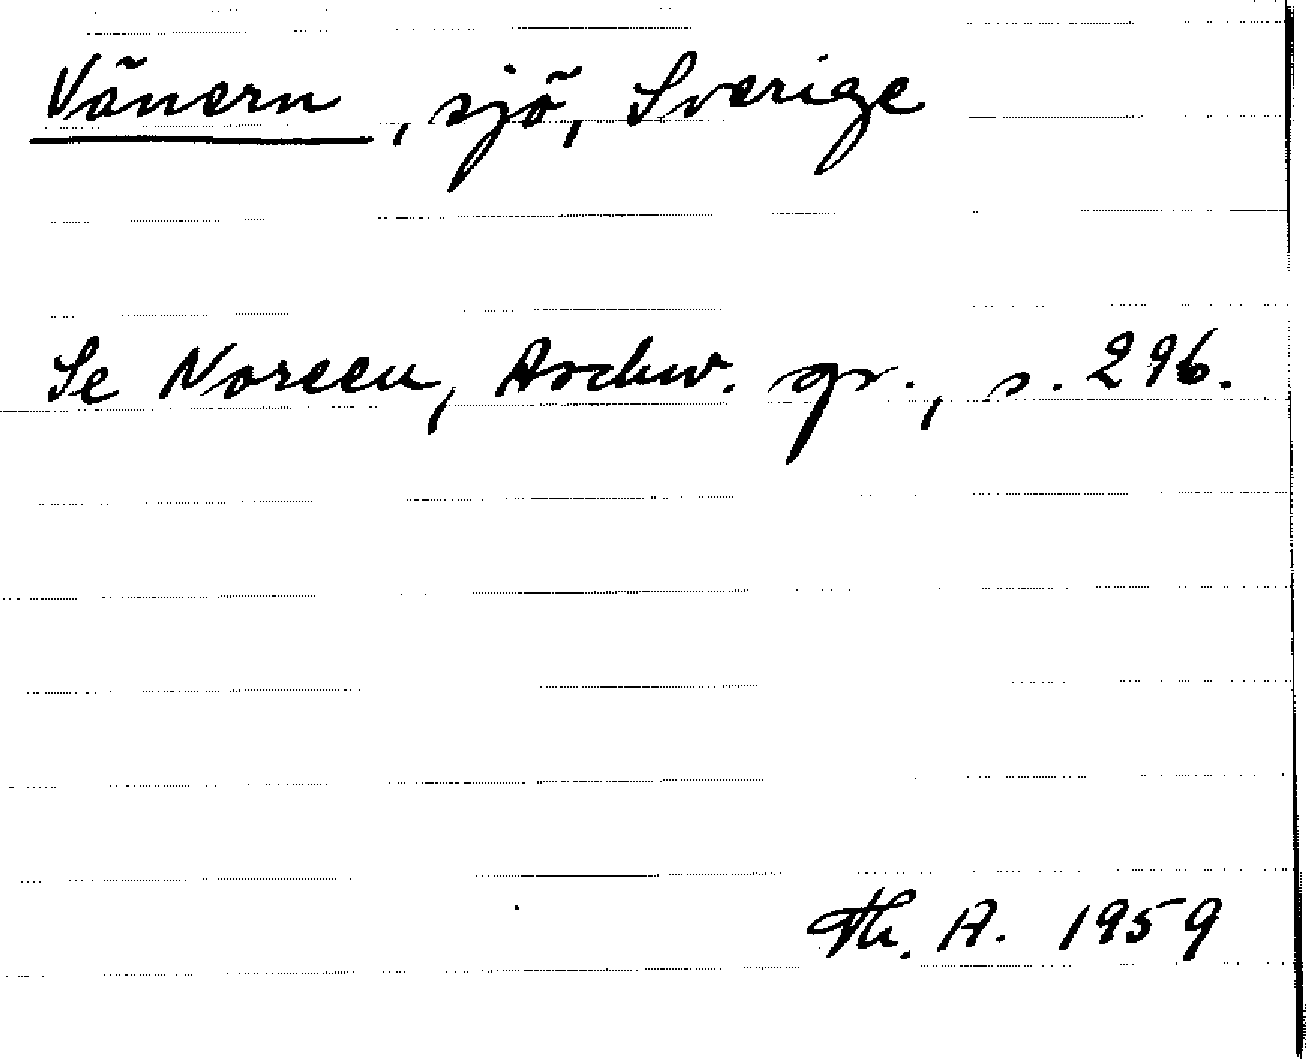 Vänern, sjö, Sverige
Se Noreen, Aschw. gr., s. 296.
Th. A. 1959